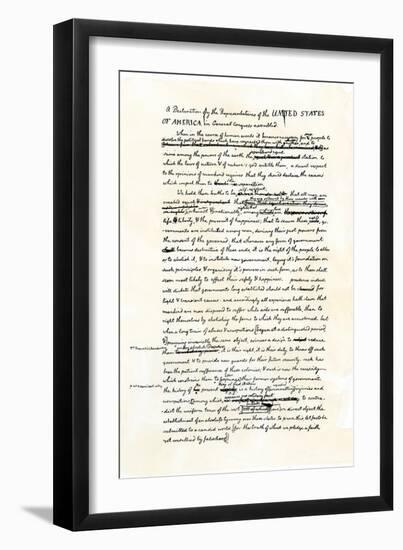 A Declaration by the Representatives of the UNITED STATES
OF AMERICA, in General Congress assembled.
When in the course of human events it becomes necessary for people to
dissolve the political bands which have connected them with another, and to
sume among the powers of the earth the station to
which the laws of nature & of nature's god entitle them, a decent respect
to the opinions of mankind requires that they should declare the causes
which impel them to the separation.
We hold these truths to be that all men are
created equal
life & liberty, & the pursuit of happiness; that to secure these
governments are instituted among men, deriving their just powers from
the consent of the governed; that whenever any form of government
becomes destructive of these ends, it is the right of the people to alter
or to abolish it, & to institute new government, laying it's foundation on
such principles & organising it's powers in such form, as to them shall
seem most likely to effect their safety & happiness. prudence indeed
will dictate that governments long established should not be changed for
light & transient causes: and accordingly all experience hath shewn that
mankind are more disposed to suffer while evils are sufferable, than to
right themselves by abolishing the forms to which they are accustomed. but
when a long train of abuses & usurpations [begun at a distinguished period
& pursuing invariably the same object, evinces a design to reduce
them it is their right, it is their duty to throw off such
government & to provide new guards for their future security. such has
been the patient sufferance of these colonies; & such is now the necessity
which constrains them to their former systems of government.
the history of is a history of injuries and
usurpations, among which,
dict the uniform tenor of the rest have in direct object the
establishment of an absolute tyranny over these states. to prove this let facts be
submitted to a candid world [for the truth of which we pledge a faith
yet unsullied by falsehood]